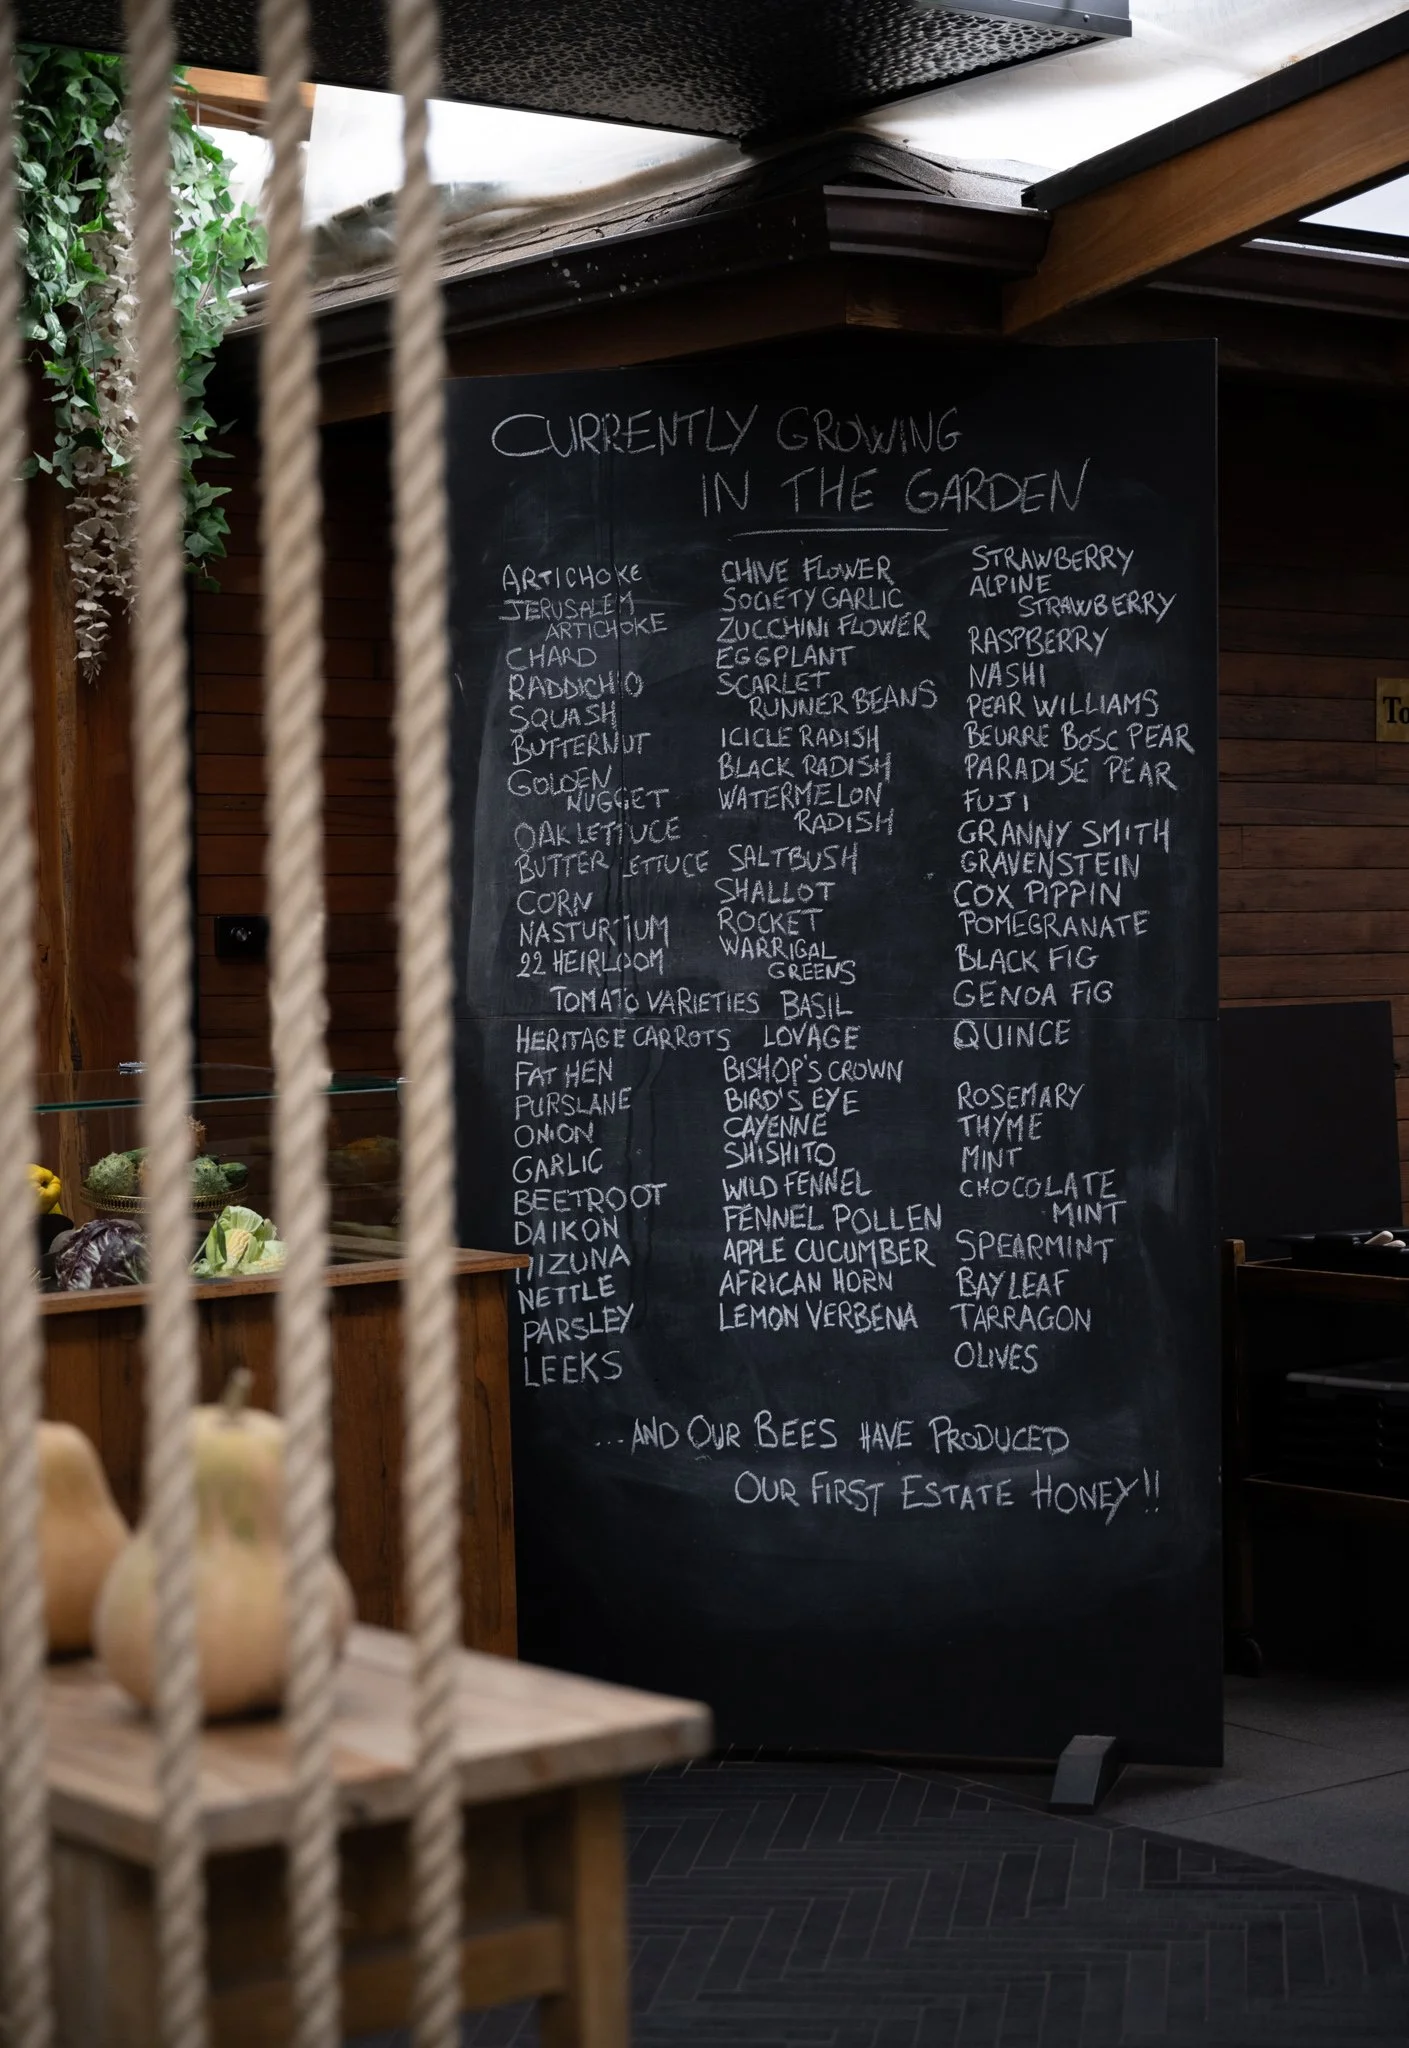 CURRENTLY GROWING
IN THE GARDEN
ARTICHOKE
JERUSALEM
ARTICHOKE
CHARD
RADDICHIO
SQUASH
BUTTERNUT
GOLDEN
NUGGET
OAK LETTUCE
BUTTER LETTUCE
CORN
NASTURTIUM
22 HEIRLOOM
TOMATO VARIETIES
HERITAGE CARROTS
FAT HEN
PURSLANE
ONION
GARLIC
BEETROOT
DAIKON
MIZUNA
NETTLE
PARSLEY
LEEKS
CHIVE FLOWER
SOCIETY GARLIC
ZUCCHINI FLOWER
EGGPLANT
SCARLET
RUNNER BEANS
ICICLE RADISH
BLACK RADISH
WATERMELON
RADISH
SALTBUSH
SHALLOT
ROCKET
WARRIGAL
GREENS
BASIL
LOVAGE
BISHOP'S CROWN
BIRD'S EYE
CAYENNE
SHISHITO
WILD FENNEL
FENNEL POLLEN
APPLE CUCUMBER
AFRICAN HORN
LEMON VERBENA
STRAWBERRY
ALPINE
STRAWBERRY
RASPBERRY
NASHI
PEAR WILLIAMS
BEURRE BOSC PEAR
PARADISE PEAR
FUJI
GRANNY SMITH
GRAVENSTEIN
COX PIPPIN
POMEGRANATE
BLACK FIG
GENOA FIG
QUINCE
ROSEMARY
THYME
MINT
CHOCOLATE
MINT
SPEARMINT
BAY LEAF
TARRAGON
OLIVES
...AND OUR BEES HAVE PRODUCED
OUR FIRST ESTATE HONEY!!